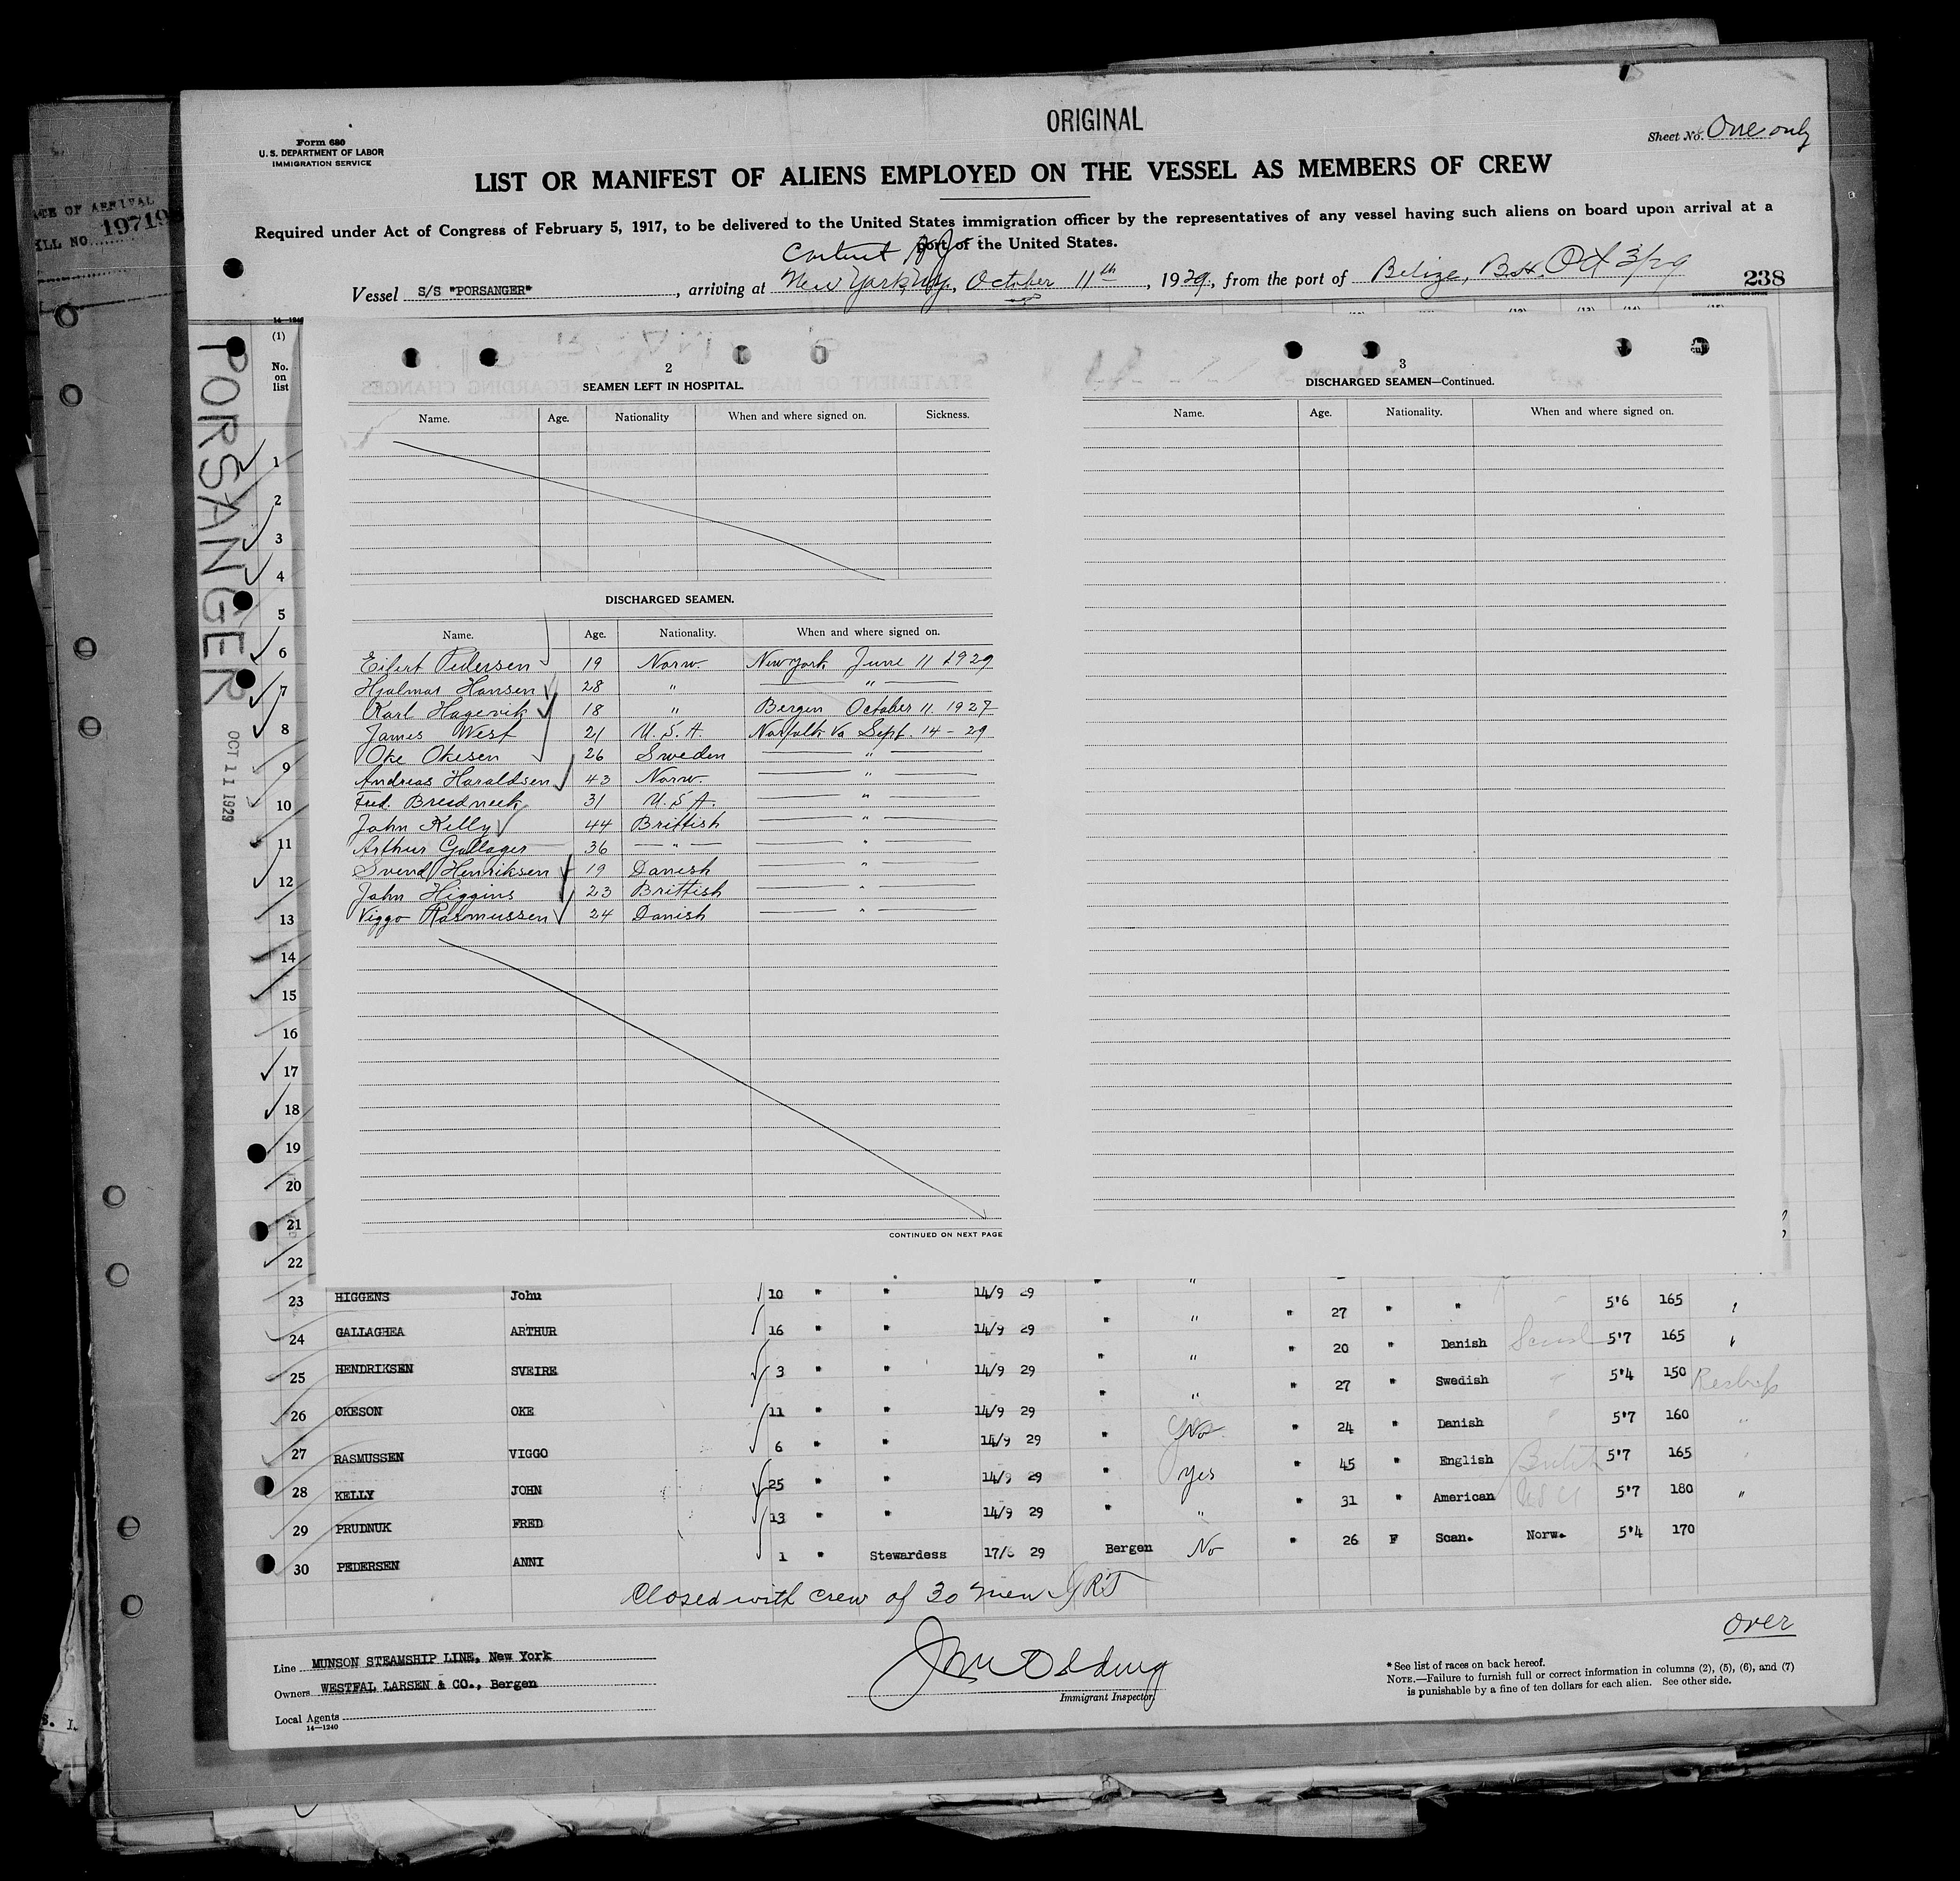 ORIGINAL
Form 680
U. S. DEPARTMENT OF LABOR
IMMIGRATION SERVICE
Sheet No. One only
LIST OR MANIFEST OF ALIENS EMPLOYED ON THE VESSEL AS MEMBERS OF CREW
Required under Act of Congress of February 5, 1917, to be delivered to the United States immigration officer by the representatives of any vessel having such aliens on board upon arrival at a
port of the United States.
Vessel S/S "PORSANGER", arriving at New York, October 11th, 1929, from the port of Belize, B.H. Oct 3/29
238
OF ARRIVAL
NO. 19719
PORSANGER
OCT 11 1929
(1)
No. on list
2
SEAMEN LEFT IN HOSPITAL.
Name. Age. Nationality When and where signed on. Sickness.
DISCHARGED SEAMEN.
Name. Age. Nationality. When and where signed on.
Eifert Pedersen 19 Norw New York June 11 1929
Hjalmar Hansen 28 " "
Karl Hagevik 18 " Bergen October 11 1927
James West 21 U.S.A. Norfolk Va Sept. 14-29
Oke Okesen 26 Sweden "
Andreas Haraldsen 43 Norw. "
Fred. Breidneck 31 U.S.A. "
John Kelly 44 Brittish "
Arthur Gallager 36 " "
Svend Henriksen 19 Danish "
John Higgins 23 Brittish "
Viggo Rasmussen 24 Danish "
CONTINUED ON NEXT PAGE
3
DISCHARGED SEAMEN—Continued.
Name. Age. Nationality. When and where signed on.
1
2
3
4
5
6
7
8
9
10
11
12
13
14
15
16
17
18
19
20
21
22
23 HIGGENS John 10 " " 14/9 29 " " " 27 " " 5'6 165
24 GALLAGHEA ARTHUR 16 " " 14/9 29 " " " 20 " Danish 5'7 165
25 HENDRIKSEN SVEIRE 3 " " 14/9 29 " " " 27 " Swedish 5'4 150
26 OKESON OKE 11 " " 14/9 29 " " " 24 " Danish 5'7 160
27 RASMUSSEN VIGGO 6 " " 14/9 29 " yes " 45 " English 5'7 165
28 KELLY JOHN 25 " " 14/9 29 " " " 31 " American 5'7 180 "
29 PRUDNUK FRED 13 " " 14/9 29 Bergen No " 26 F Scan. Norw. 5'4 170
30 PEDERSEN ANNI 1 " Stewardess 17/6 29
Closed with crew of 30 men
over
Line MUNSON STEAMSHIP LINE, New York
Owners WESTFAL LARSEN & CO., Bergen
Local Agents
14—1240
Immigrant Inspector
* See list of races on back hereof.
NOTE.—Failure to furnish full or correct information in columns (2), (5), (6), and (7)
is punishable by a fine of ten dollars for each alien. See other side.